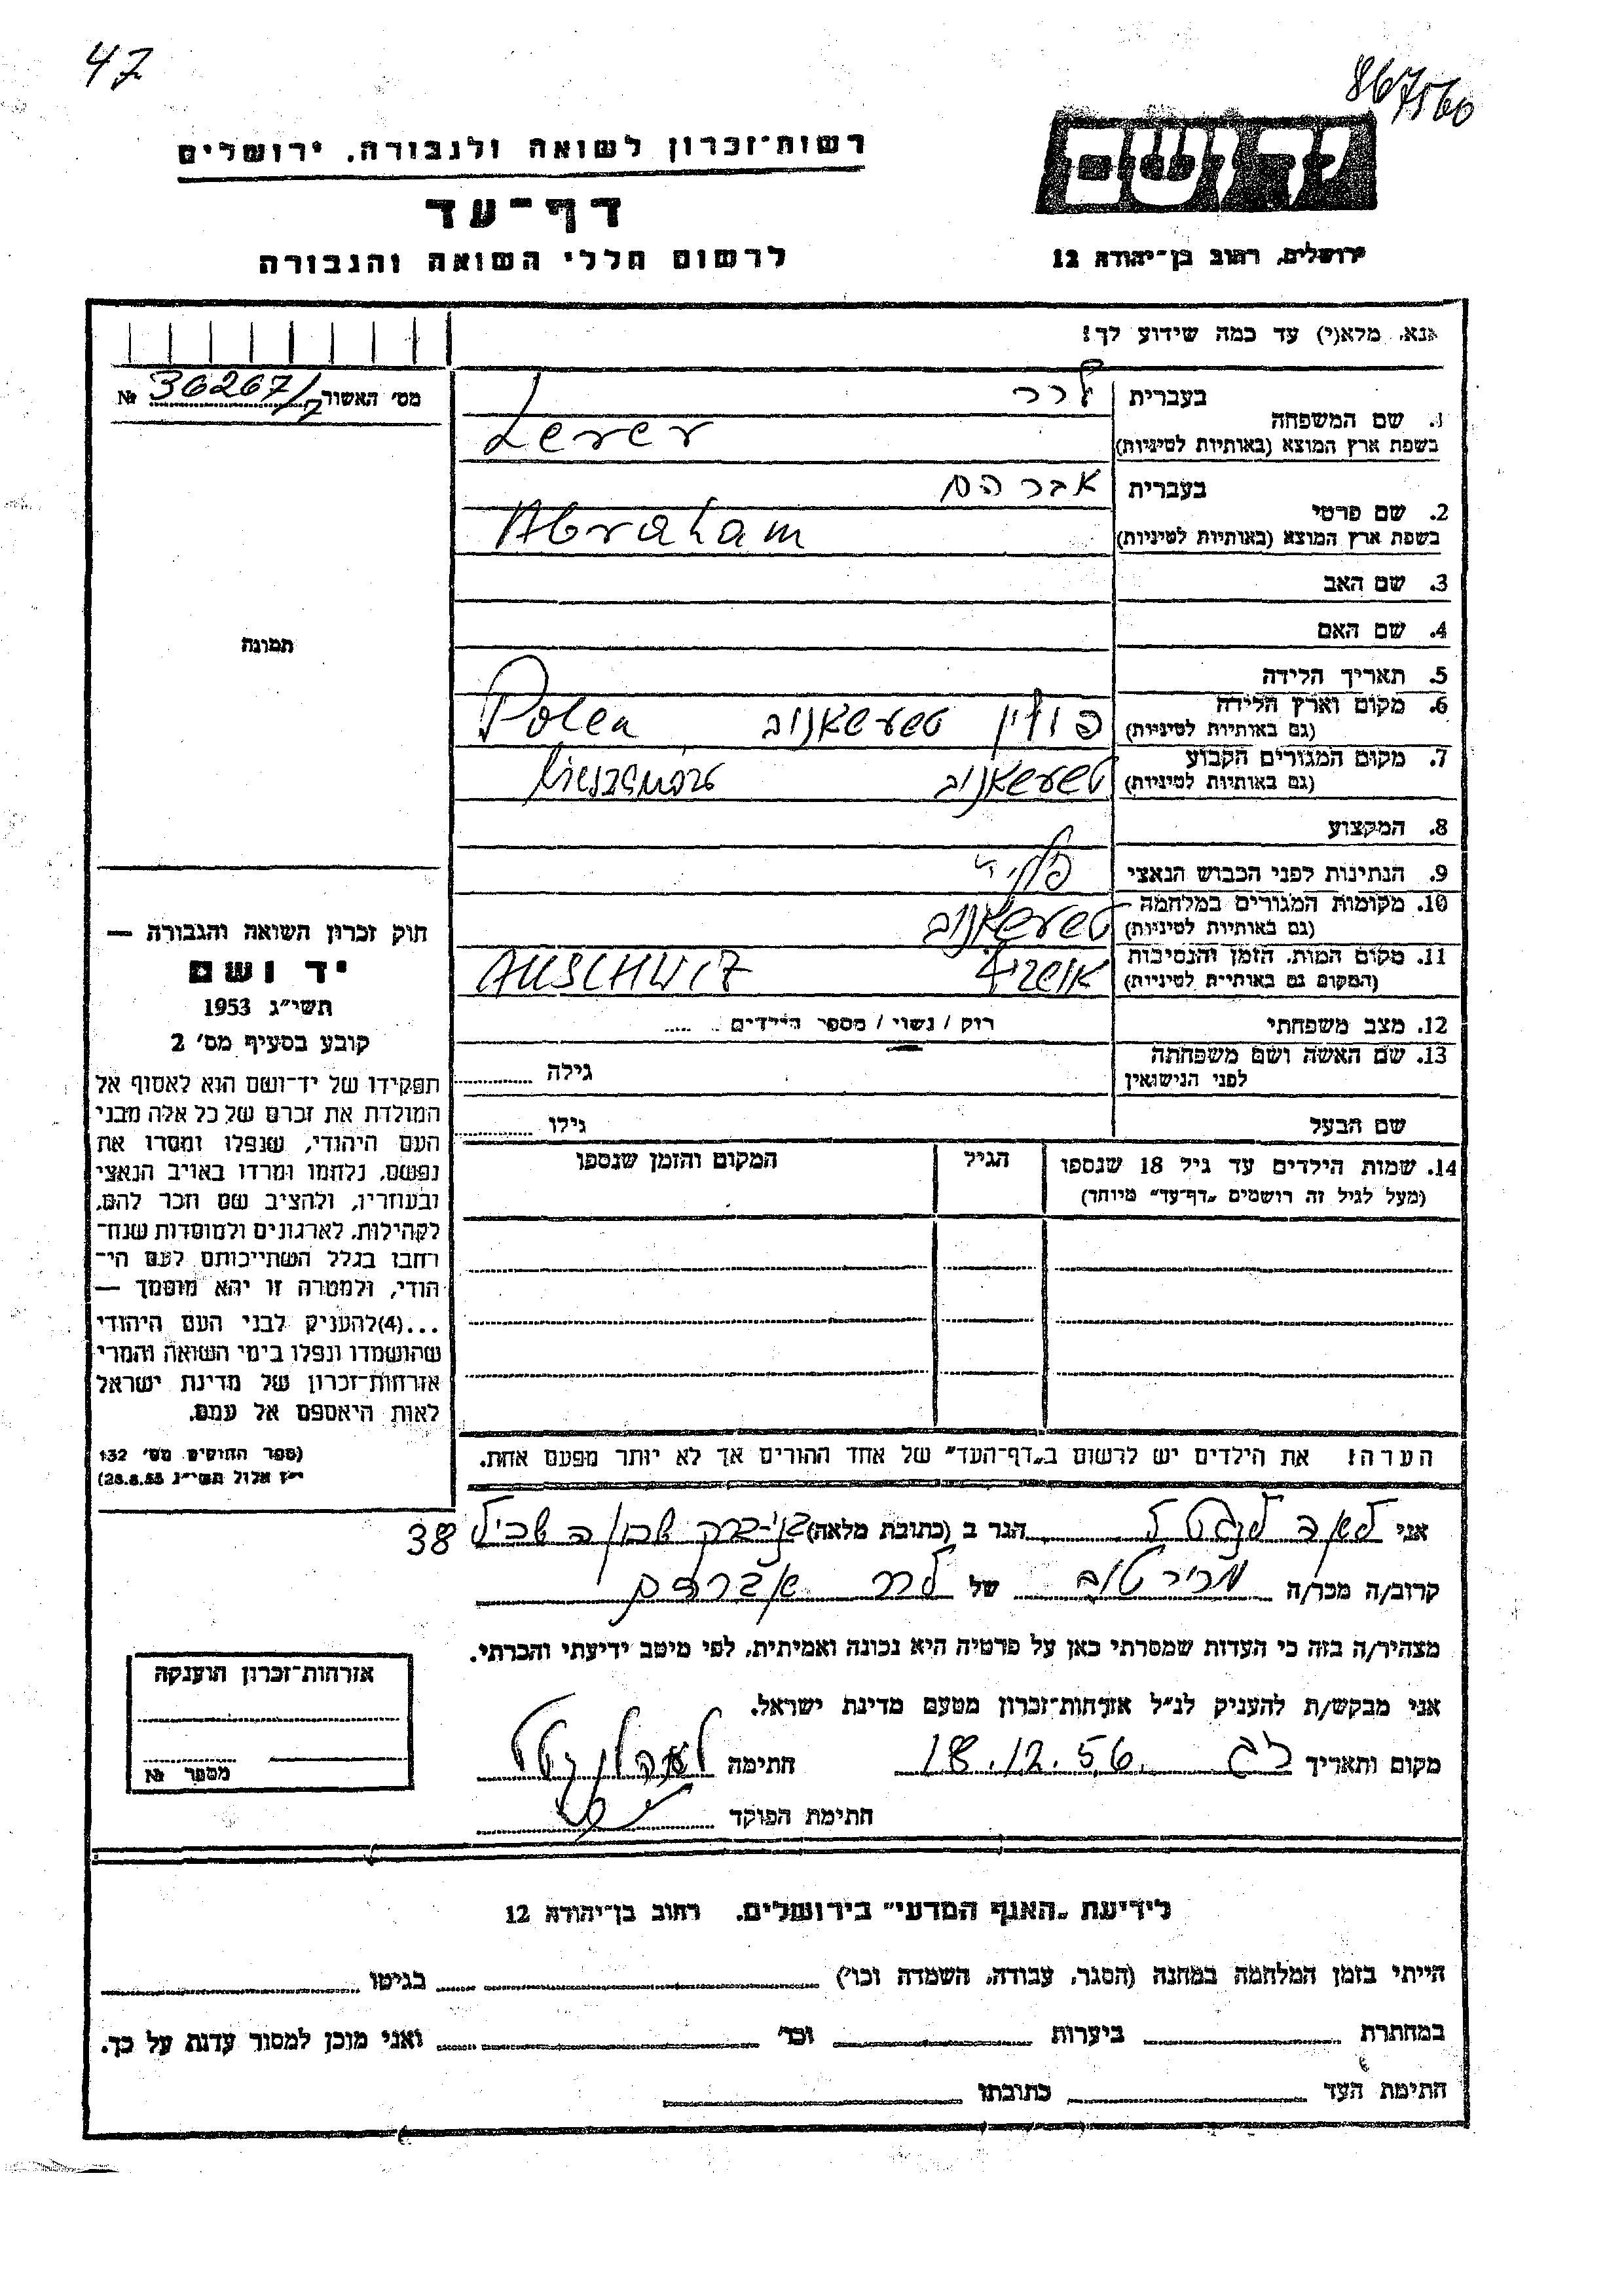 47
867560
יד ושם
רשות־זכרון לשואה ולגבורה, ירושלים
דף־עד
לרשום חללי השואה והגבורה
ירושלים, רחוב בן־יהודה 12
אנא, מלא(י) עד כמה שידוע לך!
מס׳ האשור № 36267/7
1. שם המשפחה
בעברית לרר
בשפת ארץ המוצא (באותיות לטיניות) Lerer
2. שם פרטי
בעברית אברהם
בשפת ארץ המוצא (באותיות לטיניות) Abraham
3. שם האב
4. שם האם
תמונה
5. תאריך הלידה
6. מקום וארץ הלידה
(גם באותיות לטיניות) פולין Polen
7. מקום המגורים הקבוע
(גם באותיות לטיניות)
8. המקצוע
9. הנתינות לפני הכבוש הנאצי
10. מקומות המגורים במלחמה
(גם באותיות לטיניות)
11. מקום המות, הזמן והנסיבות
(המקום גם באותיות לטיניות) AUSCHWITZ
12. מצב משפחתי רוק / נשוי / מספר הילדים
13. שם האשה ושם משפחתה
לפני הנישואין גילה
שם הבעל גילו
14. שמות הילדים עד גיל 18 שנספו הגיל המקום והזמן שנספו
(מעל לגיל זה רושמים „דף־עד״ מיוחד)
הערה: את הילדים יש לרשום ב„דף־העד״ של אחד ההורים אך לא יותר מפעם אחת.
חוק זכרון השואה והגבורה —
יד ושם
תשי״ג 1953
קובע בסעיף מס׳ 2
תפקידו של יד־ושם הוא לאסוף אל
המולדת את זכרם של כל אלה מבני
העם היהודי, שנפלו ומסרו את
נפשם, נלחמו ומרדו באויב הנאצי
ובעוזריו, ולהציב שם וזכר להם,
לקהילות, לארגונים ולמוסדות שנח־
רחבו בגלל השתייכותם לעם הי־
הודי, ולמטרה זו יהא מוסמך —
...(4)להעניק לבני העם היהודי
שהושמדו ונפלו בימי השואה והמרי
אזרחות־זכרון של מדינת ישראל
לאות היאספם אל עמם.
(ספר החוקים מס׳ 132
י״ז אלול תשי״ג 28.8.53)
אני לאה הגר ב (כתובת מלאה) בני־ברק שכון ה 38
קרוב/ה מכר/ה של לרר אברהם
מצהיר/ה בזה כי העדות שמסרתי כאן על פרטיה היא נכונה ואמיתית, לפי מיטב ידיעתי והכרתי.
אני מבקש/ת להעניק לנ״ל אזרחות־זכרון מטעם מדינת ישראל.
מקום ותאריך 18.12.56 חתימה
חתימת הפוקד
אזרחות־זכרון הוענקה
מספר №
לידיעת „האגף המדעי״ בירושלים, רחוב בן־יהודה 12
הייתי בזמן המלחמה במחנה (הסגר, עבודה, השמדה וכו׳) בגיטו
במחתרת ביערות וכו׳ ואני מוכן למסור עדות על כך.
חתימת העד כתובתו